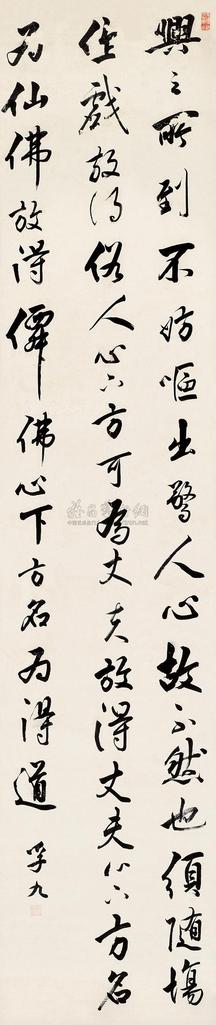 興之所到不妨嘔出驚人心故不然也須随場
作戲放得俗人心下方可為丈夫放得丈夫心下方名
為仙佛放得僊佛心下方名為得道
孚九